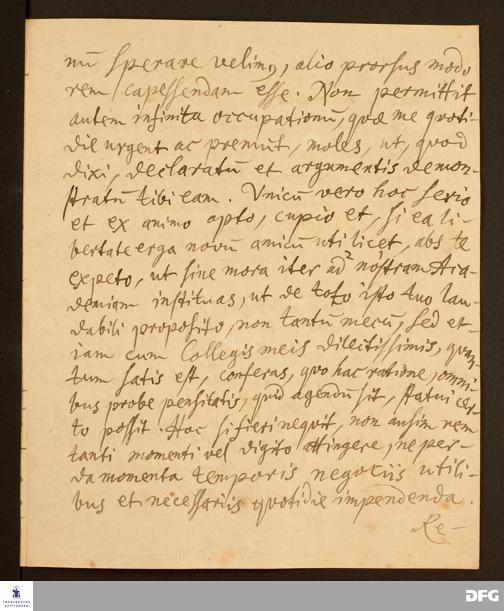 nū sperare velimꝰ, alio prorsus modo
rem capessendam esse. Non permittit
autem infinita occupationū, quæ me quoti-
die urgent ac premūt, moles, ut, quod
dixi, declaratū et argumentis demon-
stratū tibi eam. Unicū vero hoc serio
et ex animo opto, cupio et, si ea li-
bertate erga novū amicū uti licet, abs te
expeto, ut sine mora iter ad nostram Aca-
demiam instituas, ut de toto isto tuo lau-
dabili proposito, non tantū mecū, sed et-
iam cum Collegis meis dilectissimis, quan-
tum satis est, conferas, quo hac ratione, omni-
bus probe pensitatis, quid agendū sit, statui cer-
to possit. Hoc si fieri nequit, non ausim rem
tanti momenti vel digito attingere, ne per-
da momenta temporis negotiis utili-
bus et necessariis quotidie impendenda.
Re-
FRANCKESCHE
STIFTUNGEN
DFG